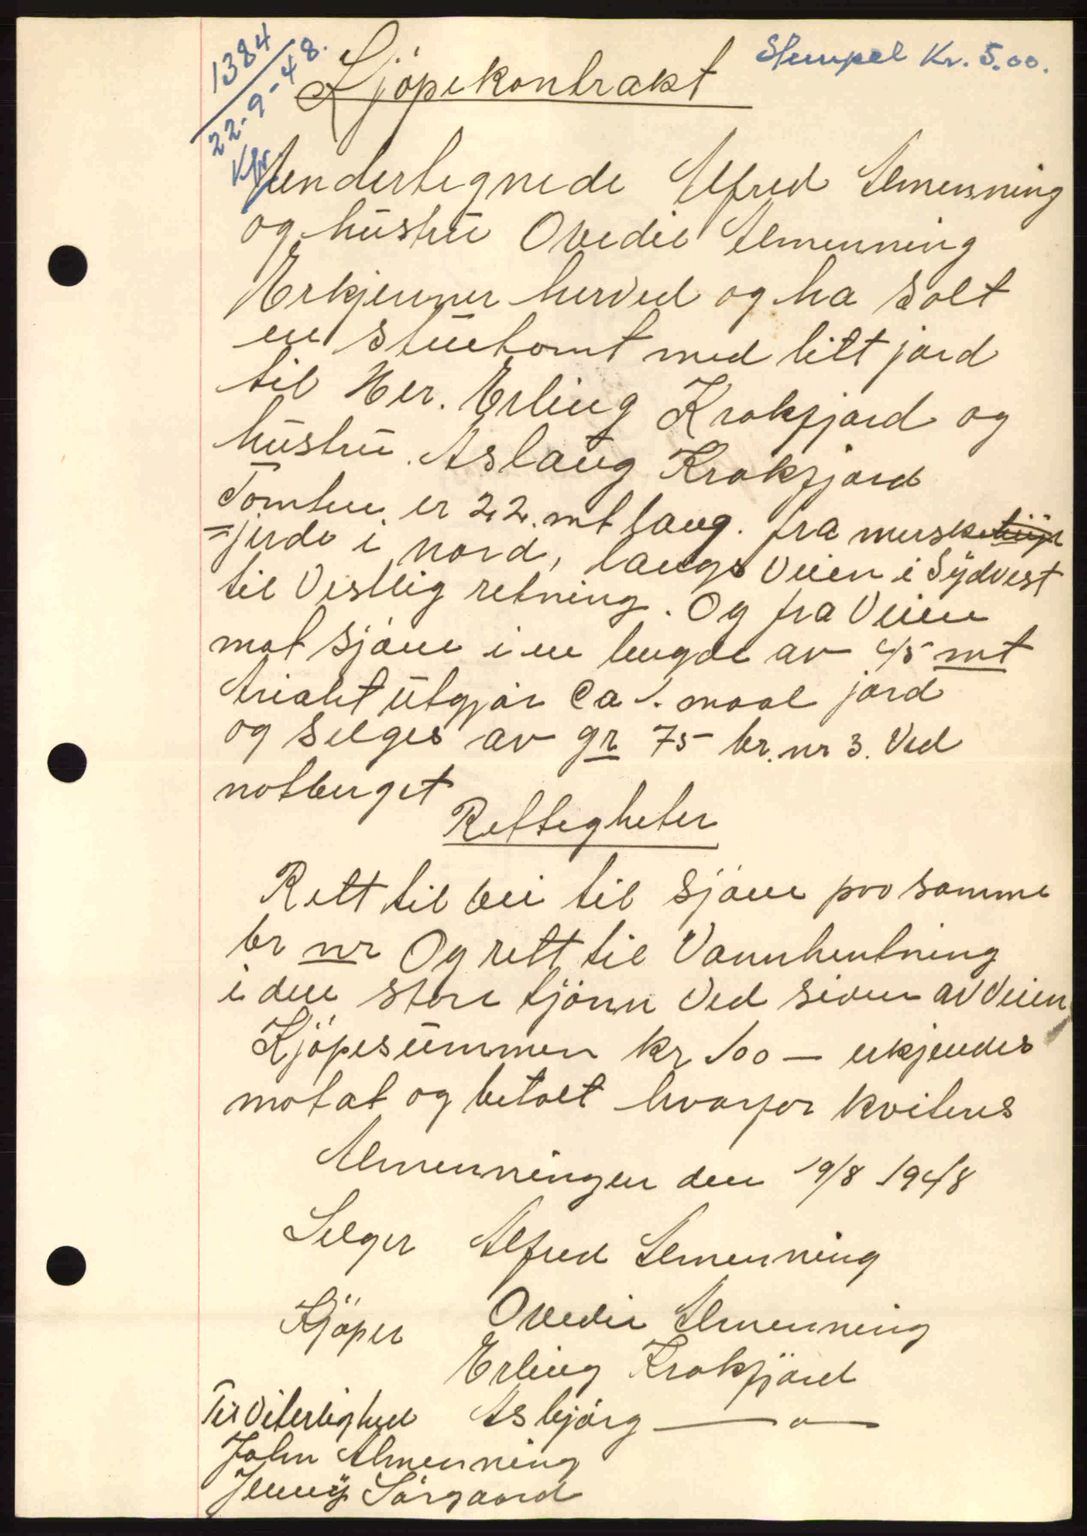 1384
22-9-48.
Stempel Kr. 5.00.
Kjöpekontrakt
Undertegnede Alfred Almenning
og hustru Ovedie Almenning
Erkjenner herved og ha solt
en stuetomt med litt jord
til Her. Erling Krokfjord og
hustru Aslaug Krokfjord
Tomten er 22. mt lang. fra merske
=gjerde i nord, langs Veien i Sydvest
til Vestlig retning. Og fra Veien
mot sjöen i en lengde av 45 mt
trialet utgjör Ca 1. maal jord
og selges av gr 75 br. nr 3. Ved
notberget
Rettigheter
Rett til vei til sjöen pro samme
br nr Og rett til Vannhentning
i den store tjönn Ved siden av Veien
Kjöpesummen kr 100 — erkjendes
motat og betalt hvorfor kvitens
Almenningen den 19/8 1948
Selger Alfred Almenning
Ovedie Almenning
Kjöper
Erling Krokfjord
Til Viterlighed Asbjörg — " —
John Almenning
Jenny Sörgaard